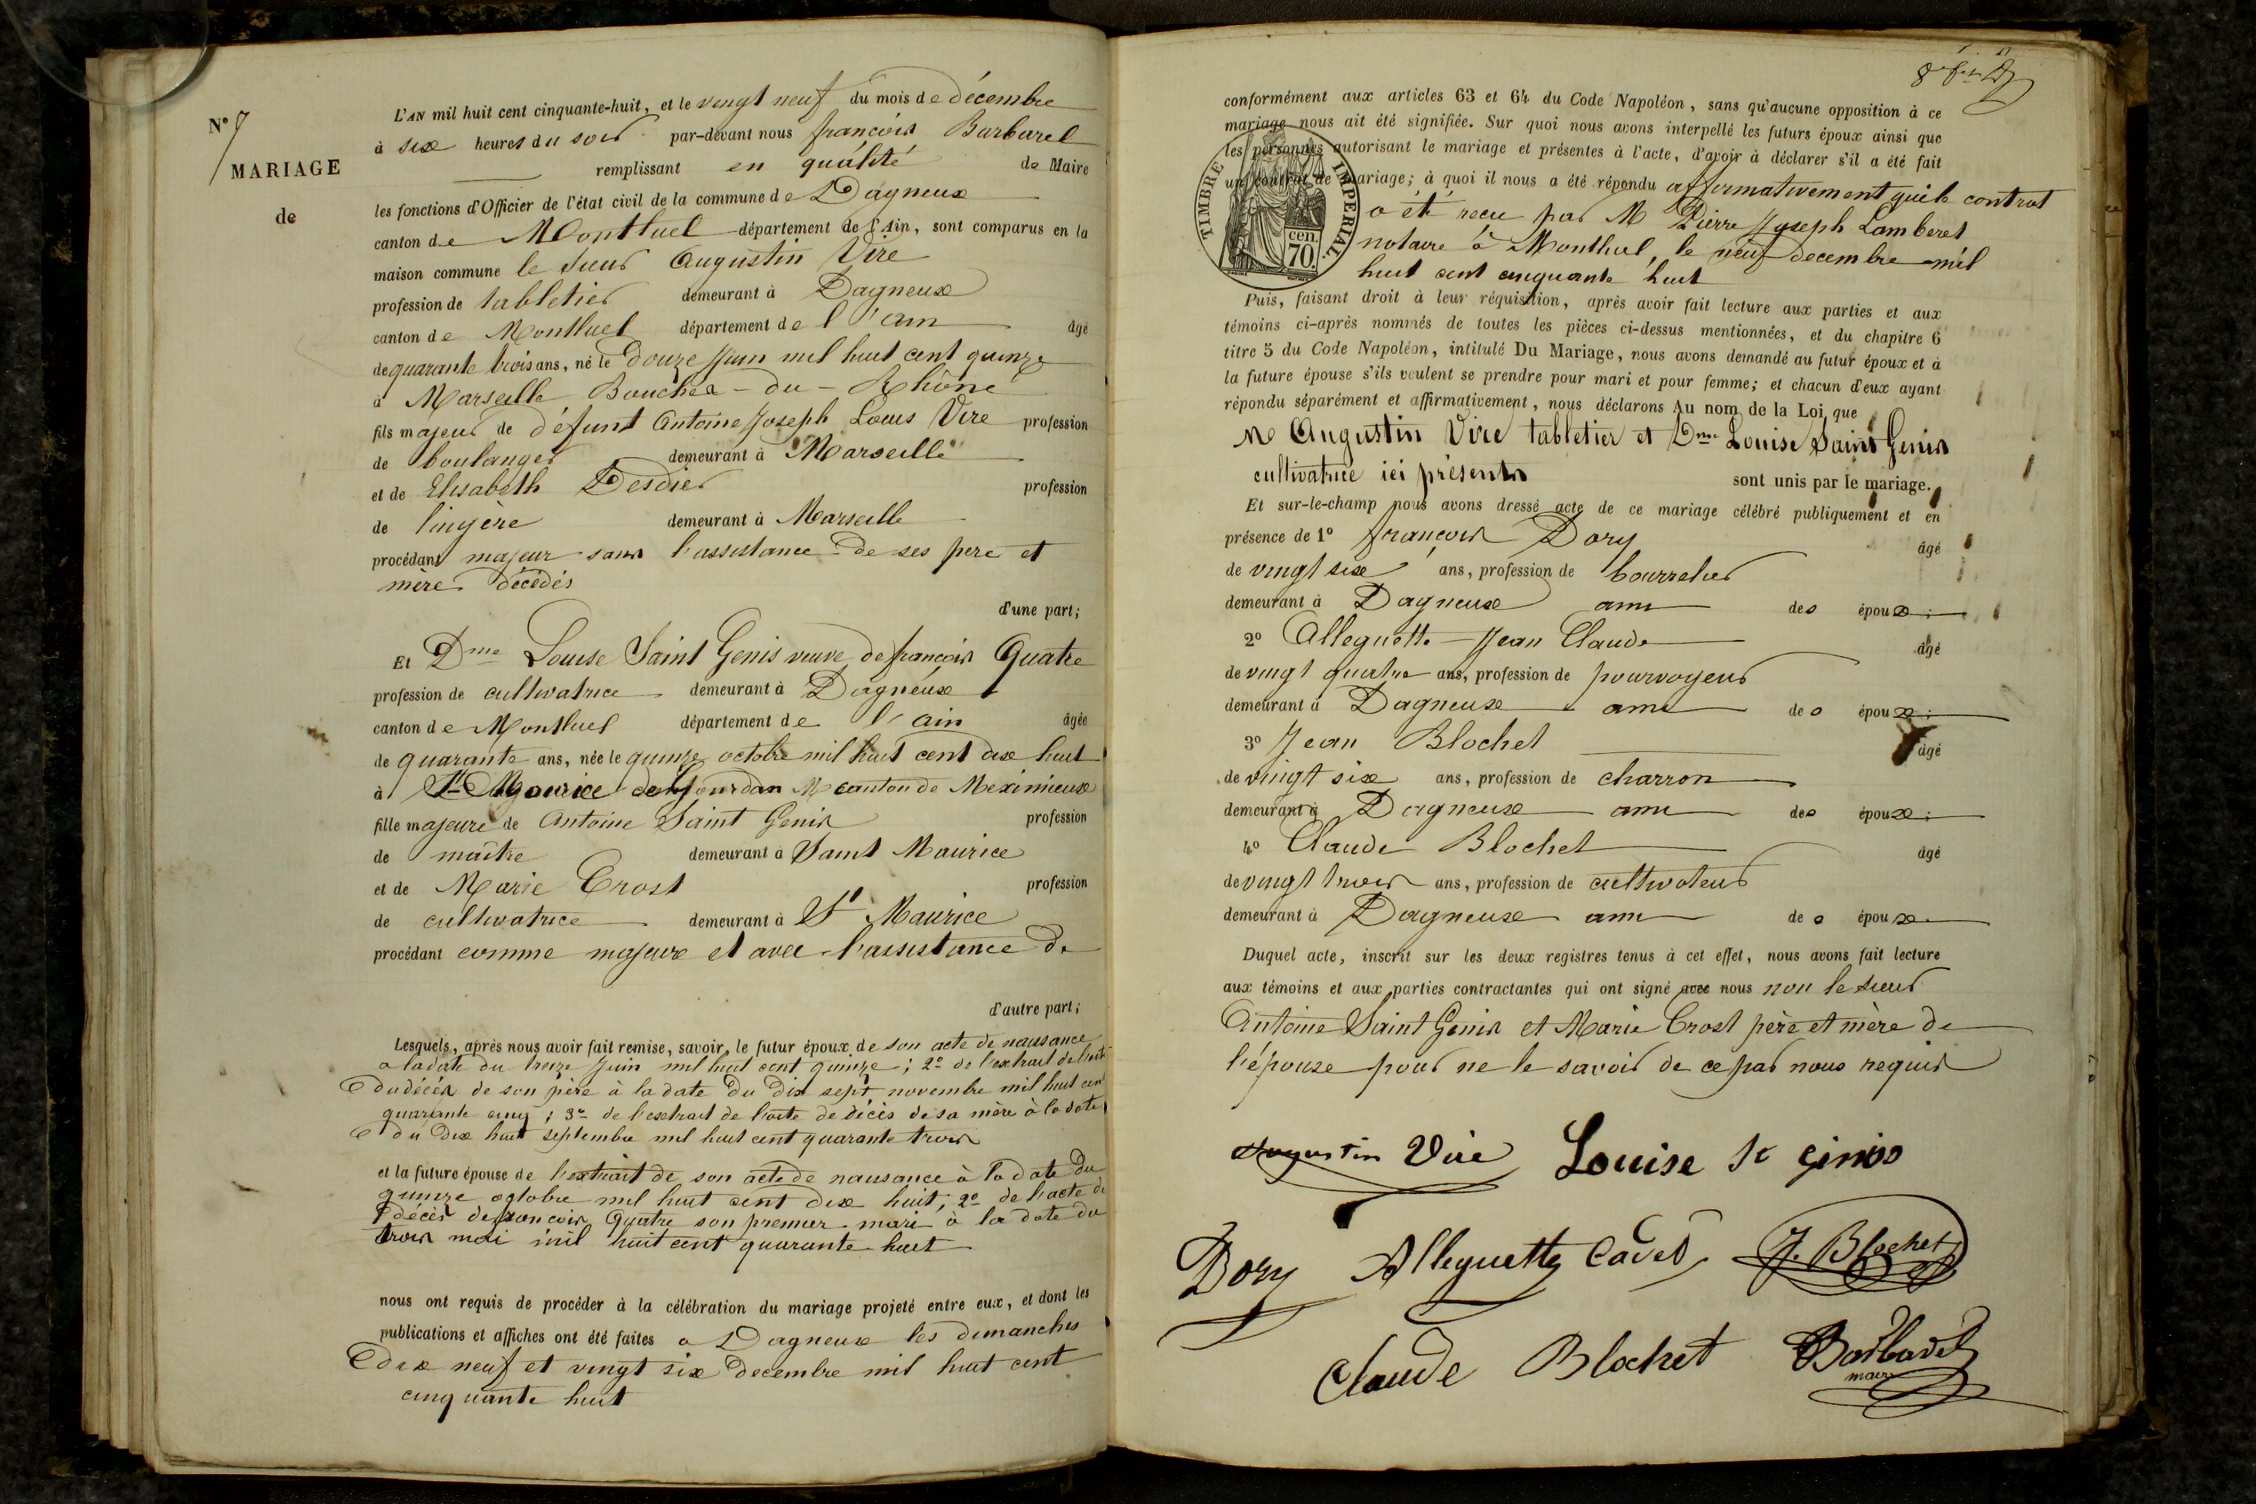 N° 7
MARIAGE
de
L'AN mil huit cent cinquante-huit, et le vingt neuf du mois de décembre
à six heures du soir par-devant nous françois Barbarel
remplissant en qualité de Maire
les fonctions d'Officier de l'état civil de la commune de Dagneux
canton de Montluel département de l'Ain, sont comparus en la
maison commune le sieur Augustin Vire
profession de tabletier demeurant à Dagneux
canton de Montluel département de l'ain âgé
de quarante trois ans, né le Douze Juin mil huit cent quinze
à Marseille Bouches-du-Rhône
fils majeur de défunt Antoine Joseph Louis Vire profession
de boulanger demeurant à Marseille
et de Elisabeth Desdier profession
de lingère demeurant à Marseille
procédant majeur sans l'assistance de ses père et
mère décédés
d'une part;
Et Dme Louise Saint Genis veuve de françois Quatre
profession de cultivatrice demeurant à Dagneux
canton de Montluel département de l'ain âgée
de quarante ans, née le quinze octobre mil huit cent dix huit
à St Maurice de Gourdan canton de Meximieux
fille majeure de Antoine Saint Genis profession
de maître demeurant à Saint Maurice
et de Marie Crost profession
de cultivatrice demeurant à St Maurice
procédant comme majeure et avec l'assistance de
d'autre part;
Lesquels, après nous avoir fait remise, savoir, le futur époux de son acte de naissance
a la date du treize Juin mil huit cent quinze; 2° de l'extrait de l'acte
du décès de son père à la date du dix sept novembre mil huit cent
quarante cinq; 3° de l'extrait de l'acte de décès de sa mère à la date
du dix huit septembre mil huit cent quarante trois
et la future épouse de l'extrait de son acte de naissance à la date du
quinze octobre mil huit cent dix huit; 2° de l'acte de
décès de françois Quatre son premier mari à la date du
trois mai mil huit cent quarante huit
nous ont requis de procéder à la célébration du mariage projeté entre eux, et dont les
publications et affiches ont été faites a Dagneux les dimanches
dix neuf et vingt six decembre mil huit cent
cinquante huit
conformément aux articles 63 et 64 du Code Napoléon, sans qu'aucune opposition à ce
mariage nous ait été signifiée. Sur quoi nous avons interpellé les futurs époux ainsi que
les personnes autorisant le mariage et présentes à l'acte, d'avoir à déclarer s'il a été fait
un contrat de mariage; à quoi il nous a été répondu affirmativement que le contrat
a été reçu par M Pierre Joseph Lamberet
notaire à Montluel, le neuf decembre mil
huit cent cinquante huit
TIMBRE IMPERIAL.
cen.
70.
Puis, faisant droit à leur réquisition, après avoir fait lecture aux parties et aux
témoins ci-après nommés de toutes les pièces ci-dessus mentionnées, et du chapitre 6
titre 5 du Code Napoléon, intitulé Du Mariage, nous avons demandé au futur époux et à
la future épouse s'ils veulent se prendre pour mari et pour femme; et chacun d'eux ayant
répondu séparément et affirmativement, nous déclarons Au nom de la Loi, que
Mr Augustin Vire tabletier et Dme Louise Saint Genis
cultivatrice ici présents sont unis par le mariage.
Et sur-le-champ nous avons dressé acte de ce mariage célébré publiquement et en
présence de 1° françois Dory âgé
de vingt six ans, profession de bourrelier
demeurant à Dagneux ami des époux;
2° Alleguette Jean Claude âgé
de vingt quatre ans, profession de pourvoyeur
demeurant à Dagneux ami des époux;
3° Jean Blochet âgé
de vingt six ans, profession de charron
demeurant à Dagneux ami des époux;
4° Claude Blochet âgé
de vingt trois ans, profession de cultivateur
demeurant à Dagneux ami des époux
Duquel acte, inscrit sur les deux registres tenus à cet effet, nous avons fait lecture
aux témoins et aux parties contractantes qui ont signé avec nous non le sieur
Antoine Saint Genis et Marie Crost père et mère de
l'épouse pour ne le savoir de ce par nous requis
Augustin Vire Louise St Ginis
Dory Alleguette Cadet J. Blochet
Claude Blochet Barbarel
maire